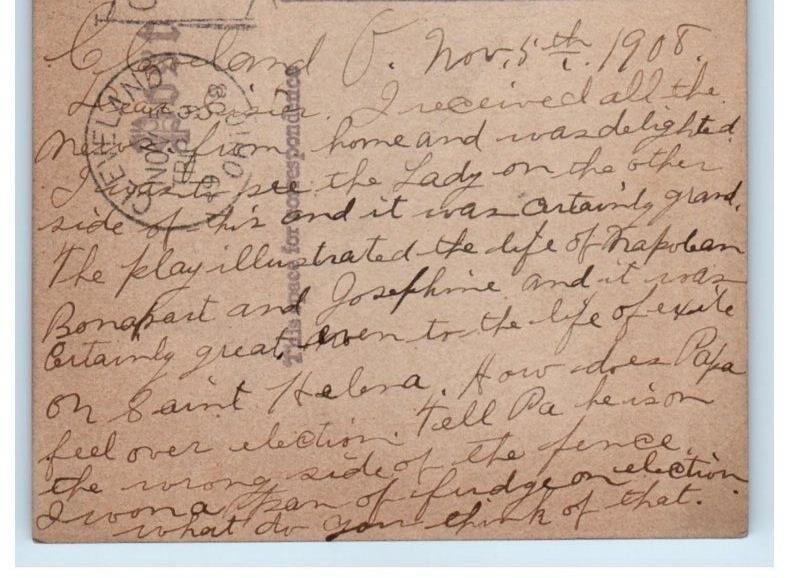 Cleveland O. Nov. 5th 1908.
Dear Sister. I received all the
news from home and was delighted.
I was to see the Lady on the other
side of this and it was certainly grand.
The play illustrated the life of Napolean
Bonapart and Josephine and it was
Certainly great, even to the life of exile
on Saint Helena. How does Papa
feel over election. Tell Pa he is on
the wrong side of the fence.
I won a pan of fudge on election
what do you think of that.
This space for correspondence
CLEVELAND OHIO
NOV